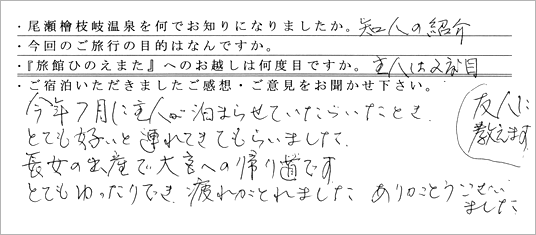 ・尾瀬檜枝岐温泉を何でお知りになりましたか。知人の紹介
・今回のご旅行の目的はなんですか。
・『旅館ひのえまた』へのお越しは何度目ですか。主人は2度目
・ご宿泊いただきましたご感想・ご意見をお聞かせ下さい。
今年7月に主人が泊まらせていただいたとき
とても好いと連れてきてもらいました。
長女の出産で大宮への帰り道です
とてもゆったりでき 疲れがとれました ありがとうござい
ました
友人に
教えます